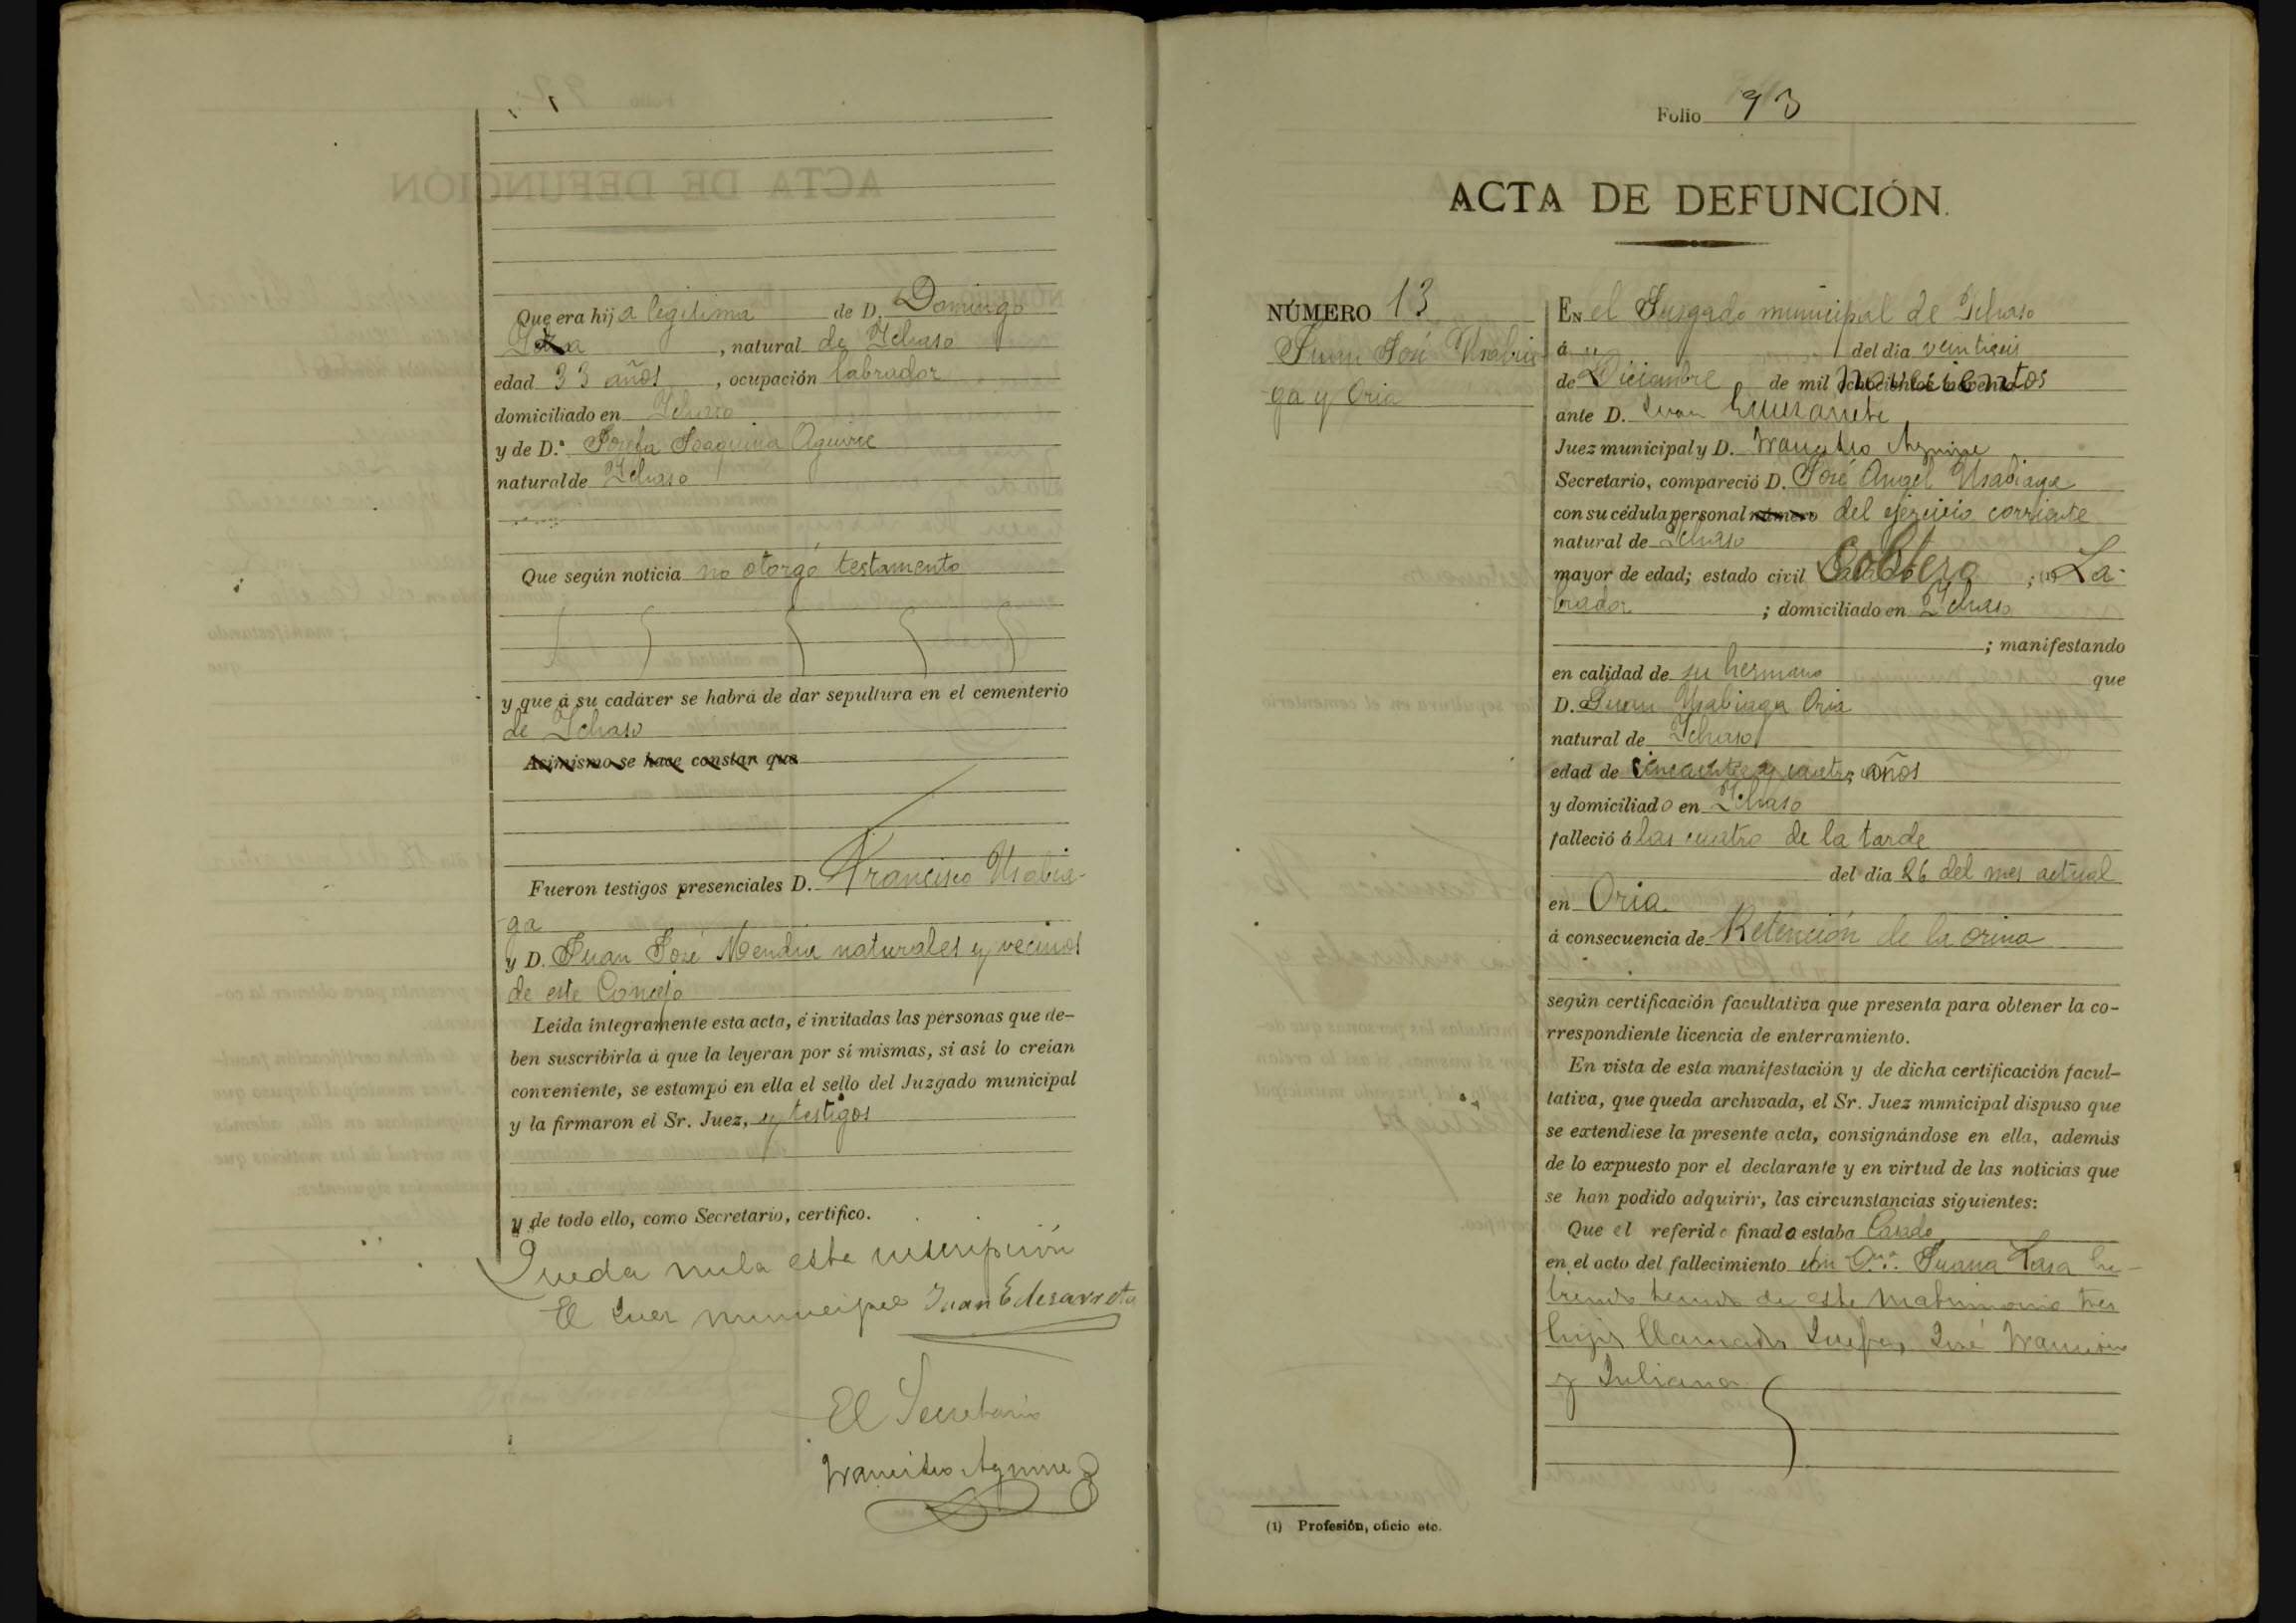 Que era hija legitima de D. Domingo
, natural de Ichaso
edad 33 años, ocupación labrador
domiciliado en Ichaso
y de D.ª Josefa Joaquina Aguirre
natural de Ichaso
Que según noticia no otorgó testamento
y que á su cadáver se habrá de dar sepultura en el cementerio
de Ichaso
Asimismo se hace constar que
Fueron testigos presenciales D. Francisco Usabia-
ga
y D. Juan José Mendia naturales y vecinos
de este Concejo
Leída íntegramente esta acta, é invitadas las personas que de-
ben suscribirla á que la leyeran por sí mismas, si así lo creían
conveniente, se estampó en ella el sello del Juzgado municipal
y la firmaron el Sr. Juez, y testigos
y de todo ello, como Secretario, certifico.
Queda nula esta inscripción
El Juez municipal Juan Elezarreta
El Secretario
Francisco Aguirre
Folio 93
ACTA DE DEFUNCIÓN.
NÚMERO 13
Juan José Usabia-
ga y Oria
EN el Jusgado municipal de Ichaso
á del dia veintiseis
de Diciembre de mil novecientos
ante D. Juan Elezarreta
Juez municipal y D. Francisco Aguirre
Secretario, compareció D. José Angel Usabiaga
con su cédula personal número del ejercicio corriente
natural de Ichaso
mayor de edad; estado civil Soltero ; (1) La-
brador ; domiciliado en Ichaso
; manifestando
en calidad de su hermano que
D. Juan Usabiaga Oria
natural de Ichaso
edad de cincuenta y cuatro años
y domiciliado en Ichaso
falleció á las cuatro de la tarde
del dia 26 del mes actual
en Oria
á consecuencia de Retención de la orina
según certificación facultativa que presenta para obtener la co-
rrespondiente licencia de enterramiento.
En vista de esta manifestación y de dicha certificación facul-
tativa, que queda archivada, el Sr. Juez municipal dispuso que
se extendiese la presente acta, consignándose en ella, además
de lo expuesto por el declarante y en virtud de las noticias que
se han podido adquirir, las circunstancias siguientes:
Que el referido finado estaba Casado
en el acto del fallecimiento con D.ª Juana Lasa ha-
biendo tenido de este matrimonio tres
hijos llamados Josefa, José Francisco
y Juliana
(1) Profesión, oficio etc.